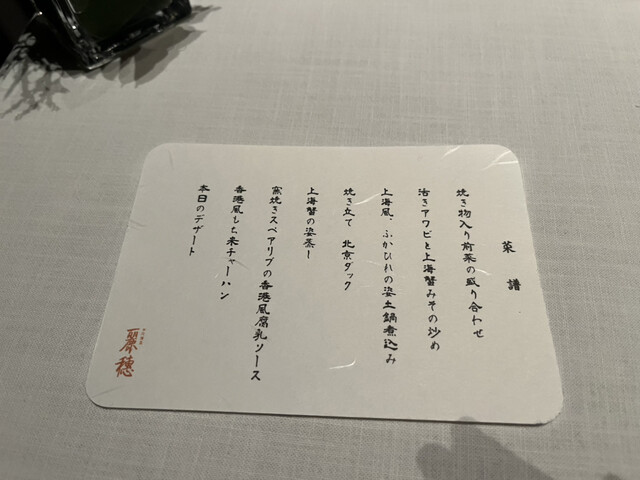 菜譜
焼き物入り前菜の盛り合わせ
活きアワビと上海蟹みその炒め
上海風、ふかひれの姿土鍋煮込み
焼き立て 北京ダック
上海蟹の姿蒸し
窯焼きスペアリブの香港風腐乳ソース
香港風もち米チャーハン
本日のデザート
麗穂